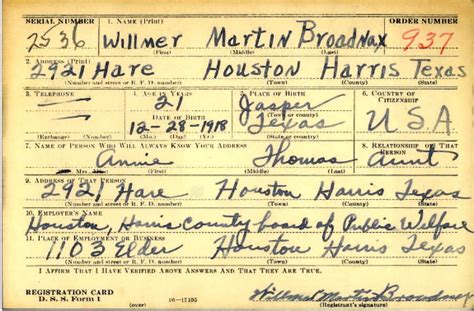 SERIAL NUMBER 1. NAME (Print) ORDER NUMBER
2536 Willmer Martin Broadnax 937
(First) (Middle) (Last)
2. ADDRESS (Print)
2921 Hare Houston Harris Texas
(Number and street or R. F. D. number) (Town) (County) (State)
3. TELEPHONE 4. AGE IN YEARS 5. PLACE OF BIRTH 6. COUNTRY OF CITIZENSHIP
21 Jasper
DATE OF BIRTH (Town or county)
12-28-1918 Texas USA
(Exchange) (Number) (Mo.) (Day) (Yr.) (State or country)
7. NAME OF PERSON WHO WILL ALWAYS KNOW YOUR ADDRESS 8. RELATIONSHIP OF THAT PERSON
Annie Thomas Aunt
(Mr., Mrs., Miss) (First) (Middle) (Last)
9. ADDRESS OF THAT PERSON
2921 Hare Houston Harris Texas
(Number and street or R. F. D. number) (Town) (County) (State)
10. EMPLOYER'S NAME
Houston, Harris County board of Public Welfare
11. PLACE OF EMPLOYMENT OR BUSINESS
1103 Elder Houston Harris Texas
(Number and street or R. F. D. number) (Town) (County) (State)
I AFFIRM THAT I HAVE VERIFIED ABOVE ANSWERS AND THAT THEY ARE TRUE.
REGISTRATION CARD
D. S. S. Form 1 16-17105 Willmer Martin Broadnax
(Registrant's signature)